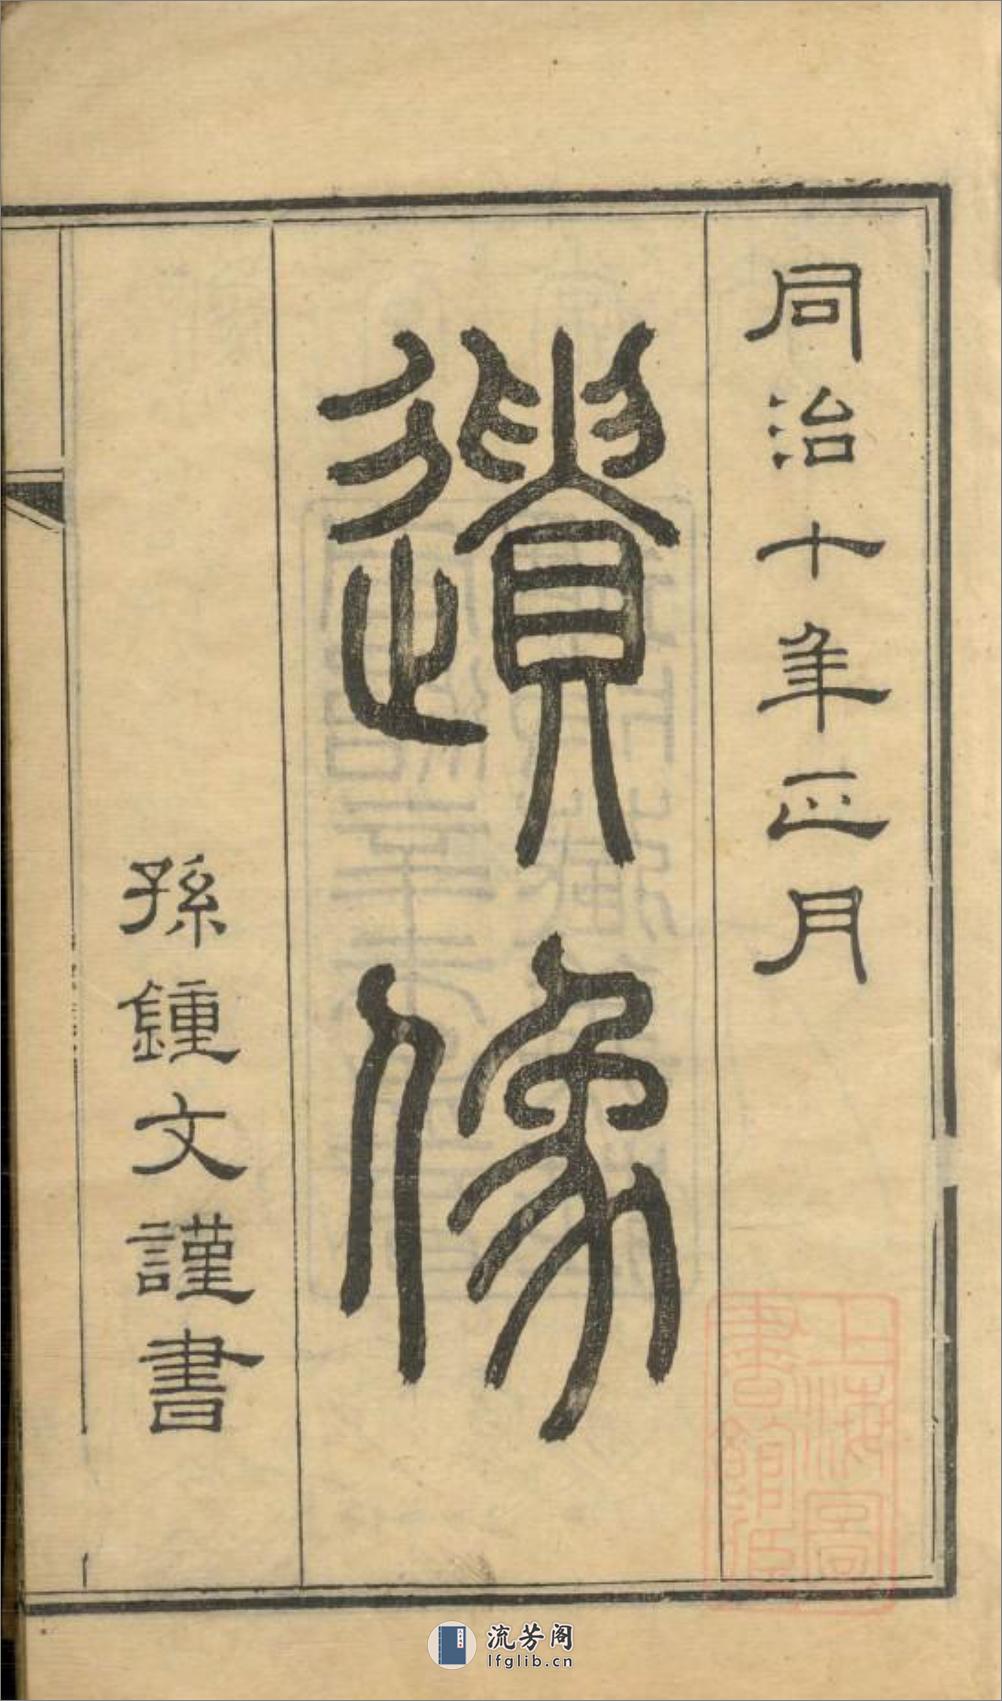 同治十年正月
遺像
孫鍾文謹書
上海圖
書館藏
流芳阁
lfglib.cn